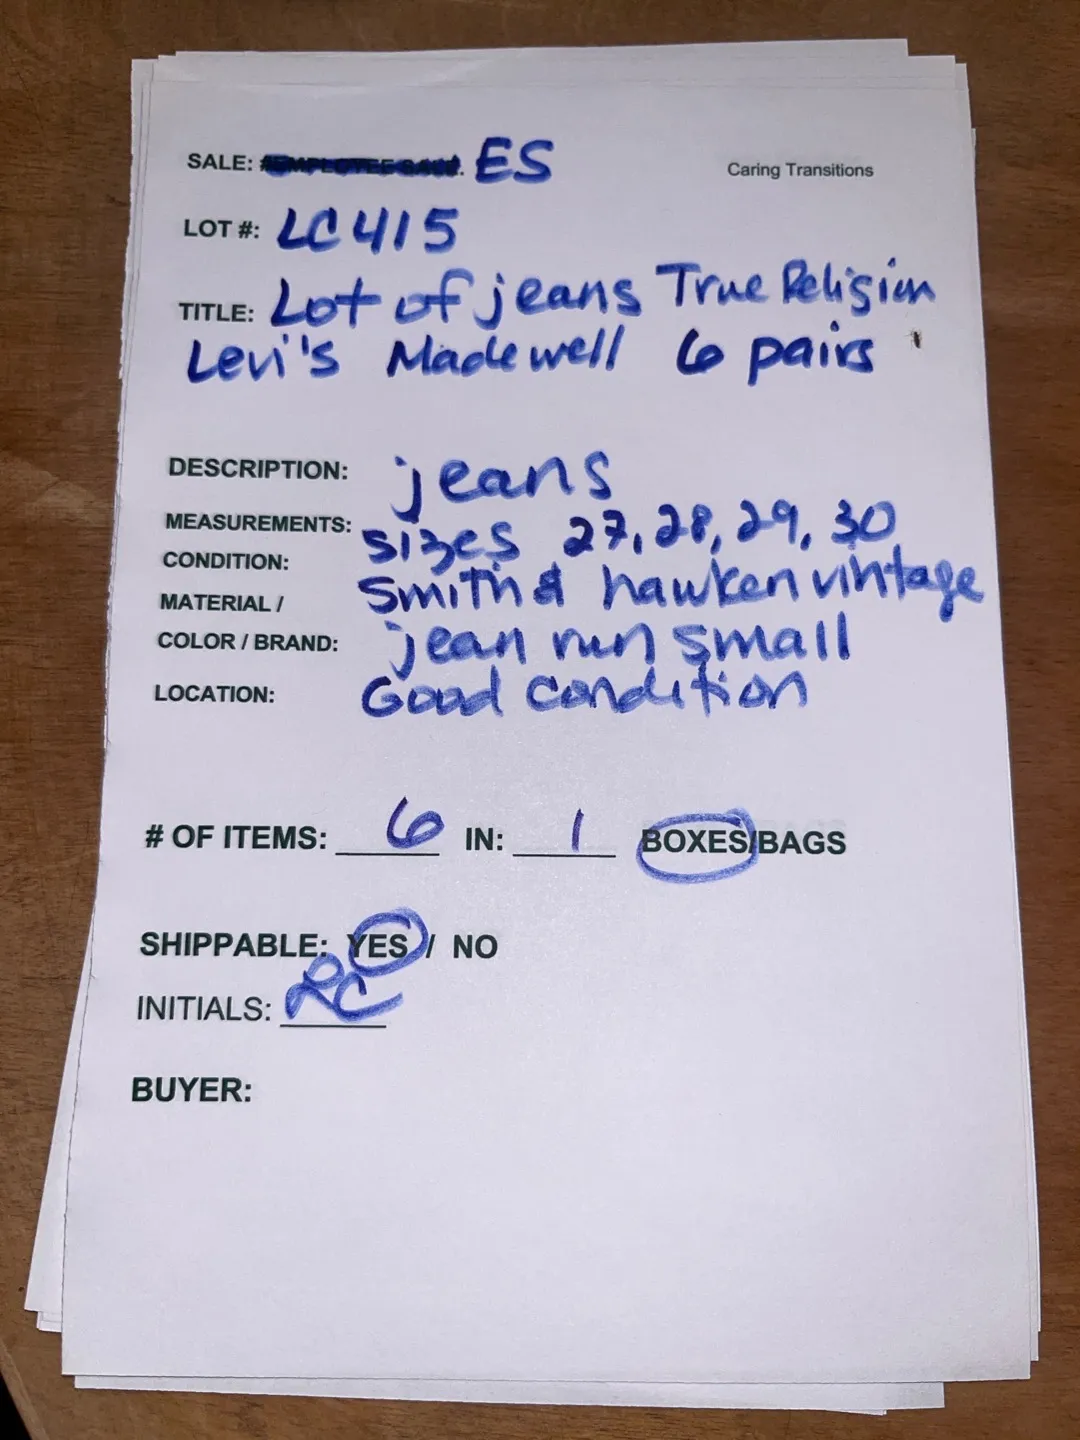 SALE: ES
Caring Transitions
LOT #: LC415
TITLE: Lot of jeans True Religion
Levi's Madewell 6 pairs
DESCRIPTION: jeans
MEASUREMENTS: sizes 27, 28, 29, 30
CONDITION:
MATERIAL / Smith & hawken vintage
COLOR / BRAND: jean run small
LOCATION: Good condition
# OF ITEMS: 6 IN: 1 BOXES/BAGS
SHIPPABLE: YES / NO
INITIALS: LC
BUYER: